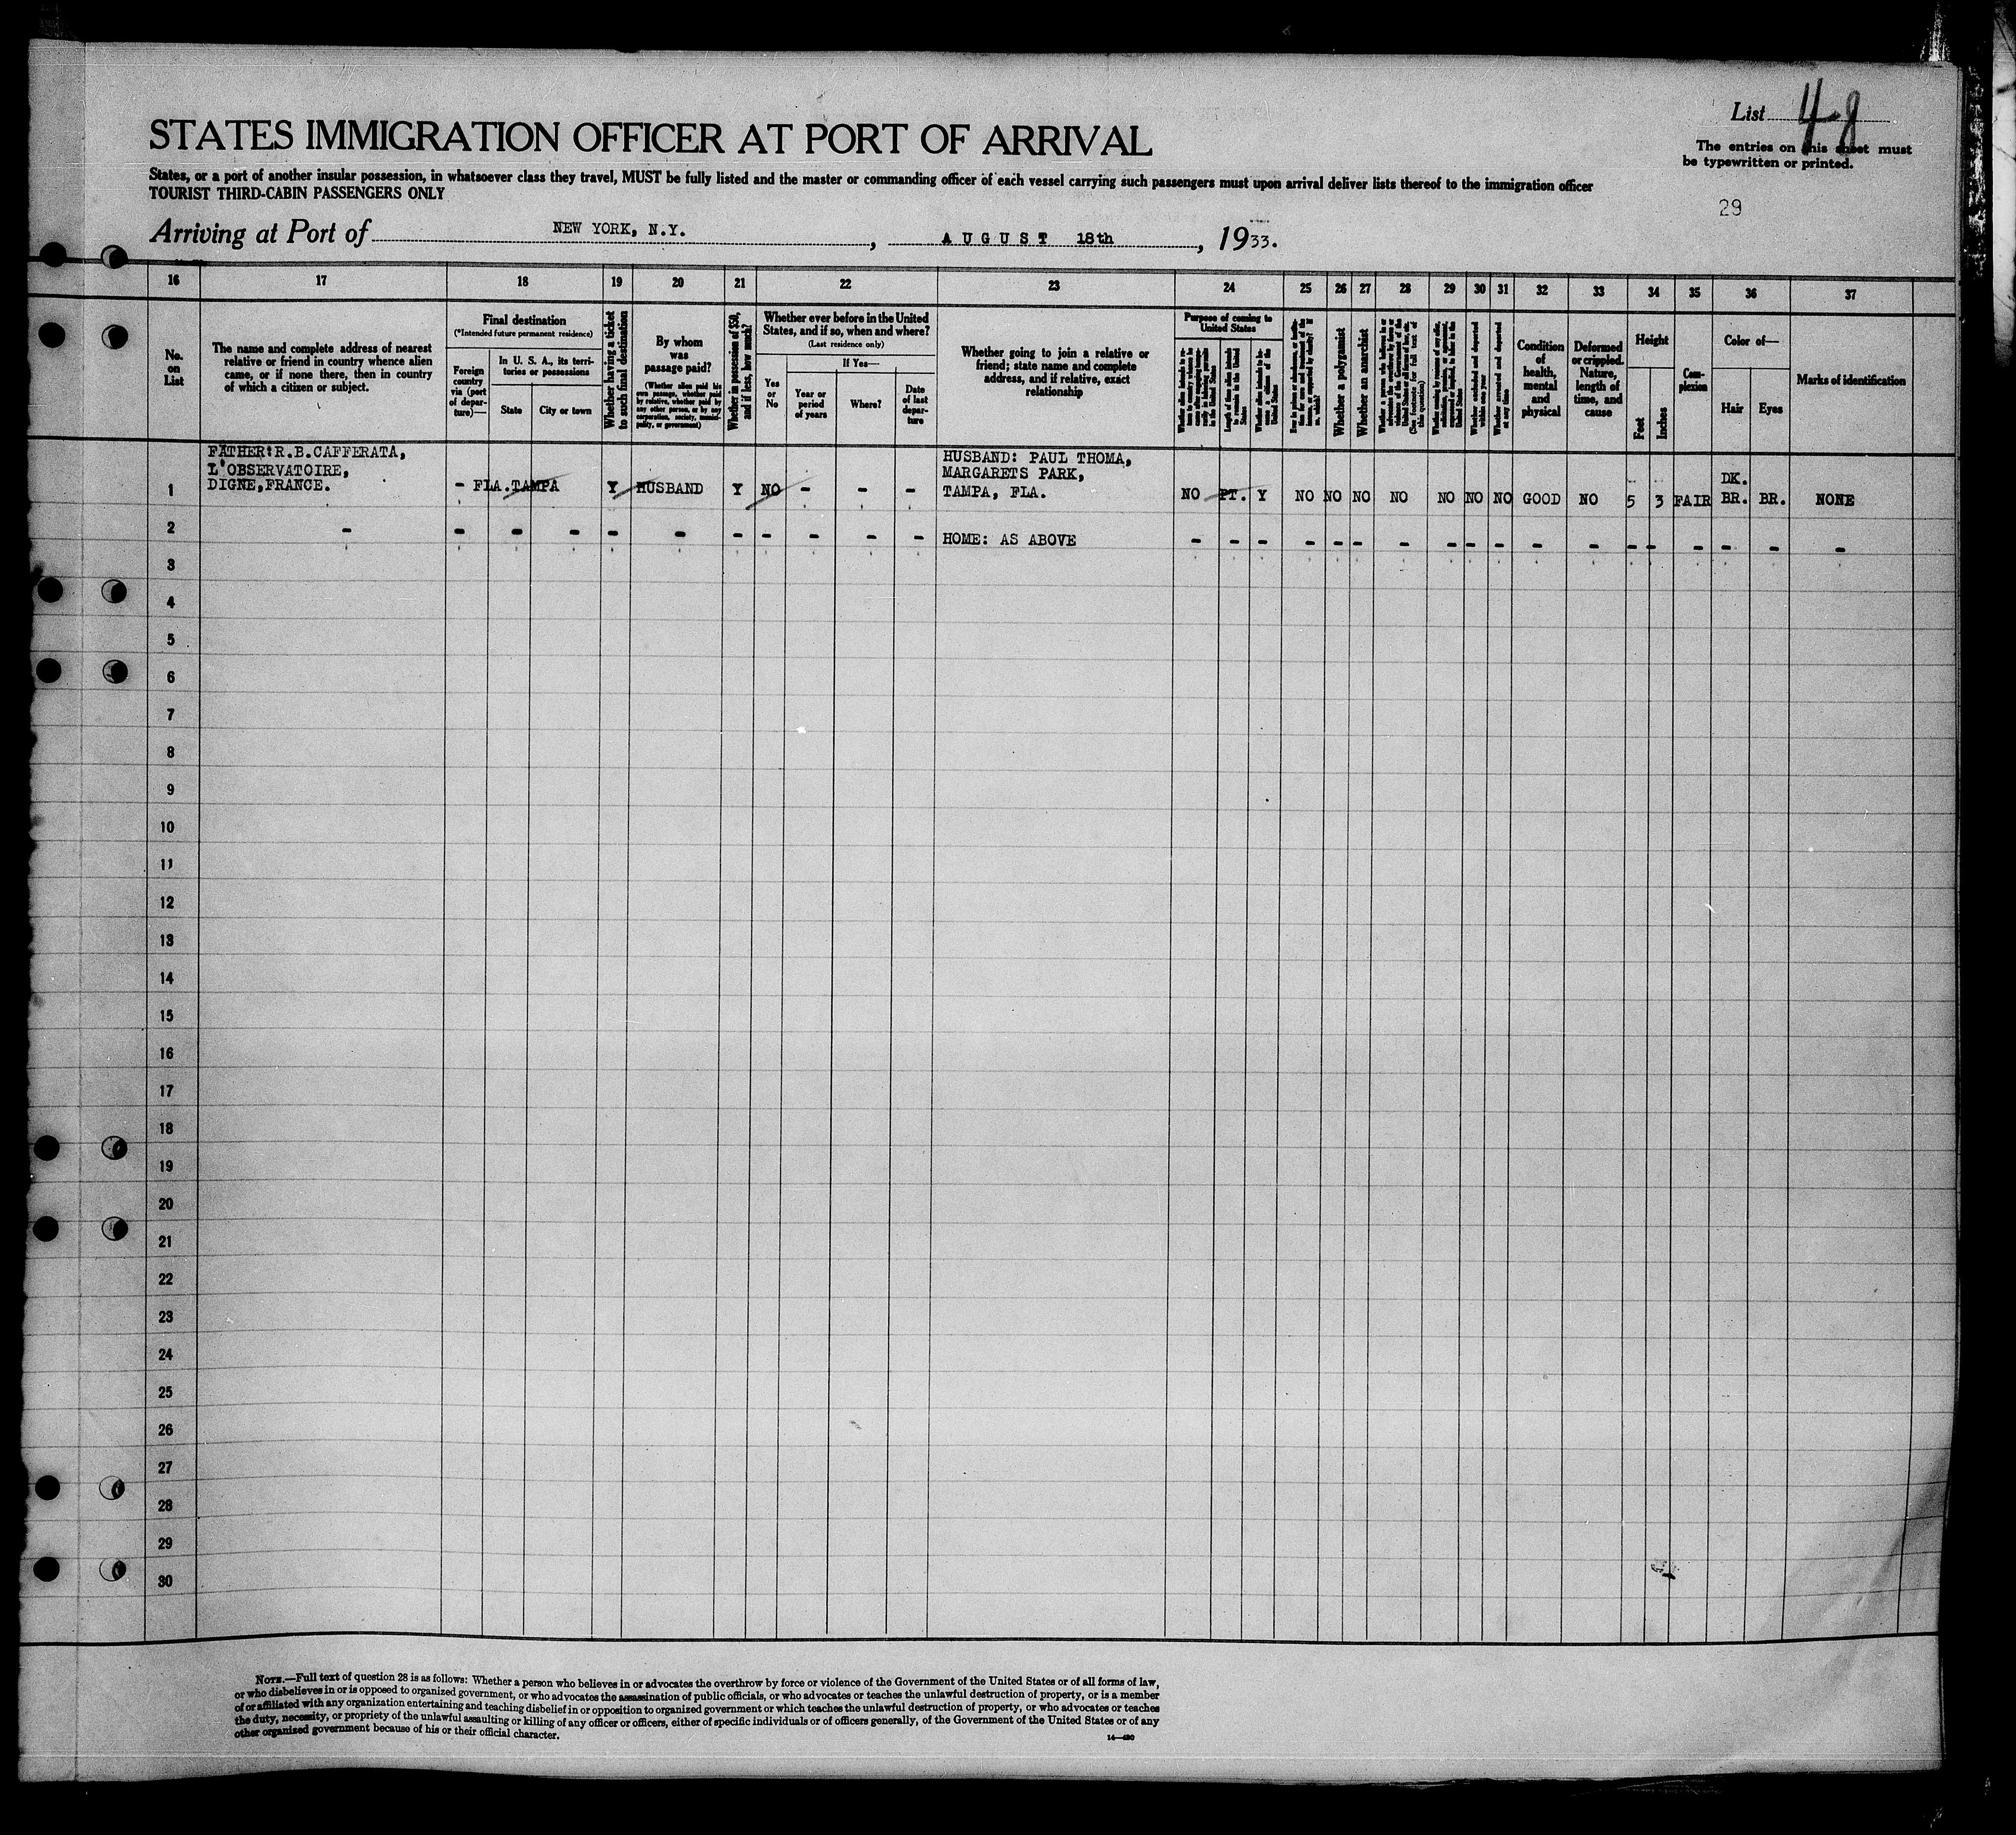 List 48
STATES IMMIGRATION OFFICER AT PORT OF ARRIVAL
The entries on this sheet must
be typewritten or printed.
States, or a port of another insular possession, in whatsoever class they travel, MUST be fully listed and the master or commanding officer of each vessel carrying such passengers must upon arrival deliver lists thereof to the immigration officer
TOURIST THIRD-CABIN PASSENGERS ONLY
29
Arriving at Port of NEW YORK, N.Y. , AUGUST 18th , 1933.
16 17 18 19 20 21 22 23 24 25 26 27 28 29 30 31 32 33 34 35 36 37
No.
on
List
The name and complete address of nearest
relative or friend in country whence alien
came, or if none there, then in country
of which a citizen or subject.
Final destination
(*Intended future permanent residence)
Foreign
country
via (port
of depar-
ture)—
In U. S. A., its terri-
tories or possessions
State
City or town
Whether having a ticket
to such final destination
By whom
was
passage paid?
(Whether alien paid his
own passage, whether paid
by relative, whether paid by
any other person, or by any
corporation, society, munici-
pality, or government)
Whether in possession of $50,
and if less, how much?
Whether ever before in the United
States, and if so, when and where?
(Last residence only)
Yes
or
No
If Yes—
Year or
period
of years
Where?
Date
of last
depar-
ture
Whether going to join a relative or
friend; state name and complete
address, and if relative, exact
relationship
Purpose of coming to
United States
Length of time alien intends
to remain in the United
States
Whether a polygamist
Whether an anarchist
(See footnote for full text of
this question)
Whether arrested and deported
at any time
Condition
of
health,
mental
and
physical
Deformed
or crippled.
Nature,
length of
time, and
cause
Height
Feet
Inches
Com-
plexion
Color of—
Hair
Eyes
Marks of identification
FATHER:R.B.CAFFERATA,
L'OBSERVATOIRE,
DIGNE,FRANCE.
HUSBAND: PAUL THOMA,
MARGARETS PARK,
TAMPA, FLA.
1 - FLA. TAMPA Y HUSBAND Y NO - - - NO PT. Y NO NO NO NO NO NO NO GOOD NO 5 3 FAIR DK. BR. BR. NONE
2 - - - - - - - - - - - HOME: AS ABOVE - - - - - - - - - - - - - - - - - -
3
4
5
6
7
8
9
10
11
12
13
14
15
16
17
18
19
20
21
22
23
24
25
26
27
28
29
30
NOTE.—Full text of question 28 is as follows: Whether a person who believes in or advocates the overthrow by force or violence of the Government of the United States or of all forms of law,
or who disbelieves in or is opposed to organized government, or who advocates the assassination of public officials, or who advocates or teaches the unlawful destruction of property, or is a member
of or affiliated with any organization entertaining and teaching disbelief in or opposition to organized government or which teaches the unlawful destruction of property, or who advocates or teaches
the duty, necessity, or propriety of the unlawful assaulting or killing of any officer or officers, either of specific individuals or of officers generally, of the Government of the United States or of any
other organized government because of his or their official character.
14—480